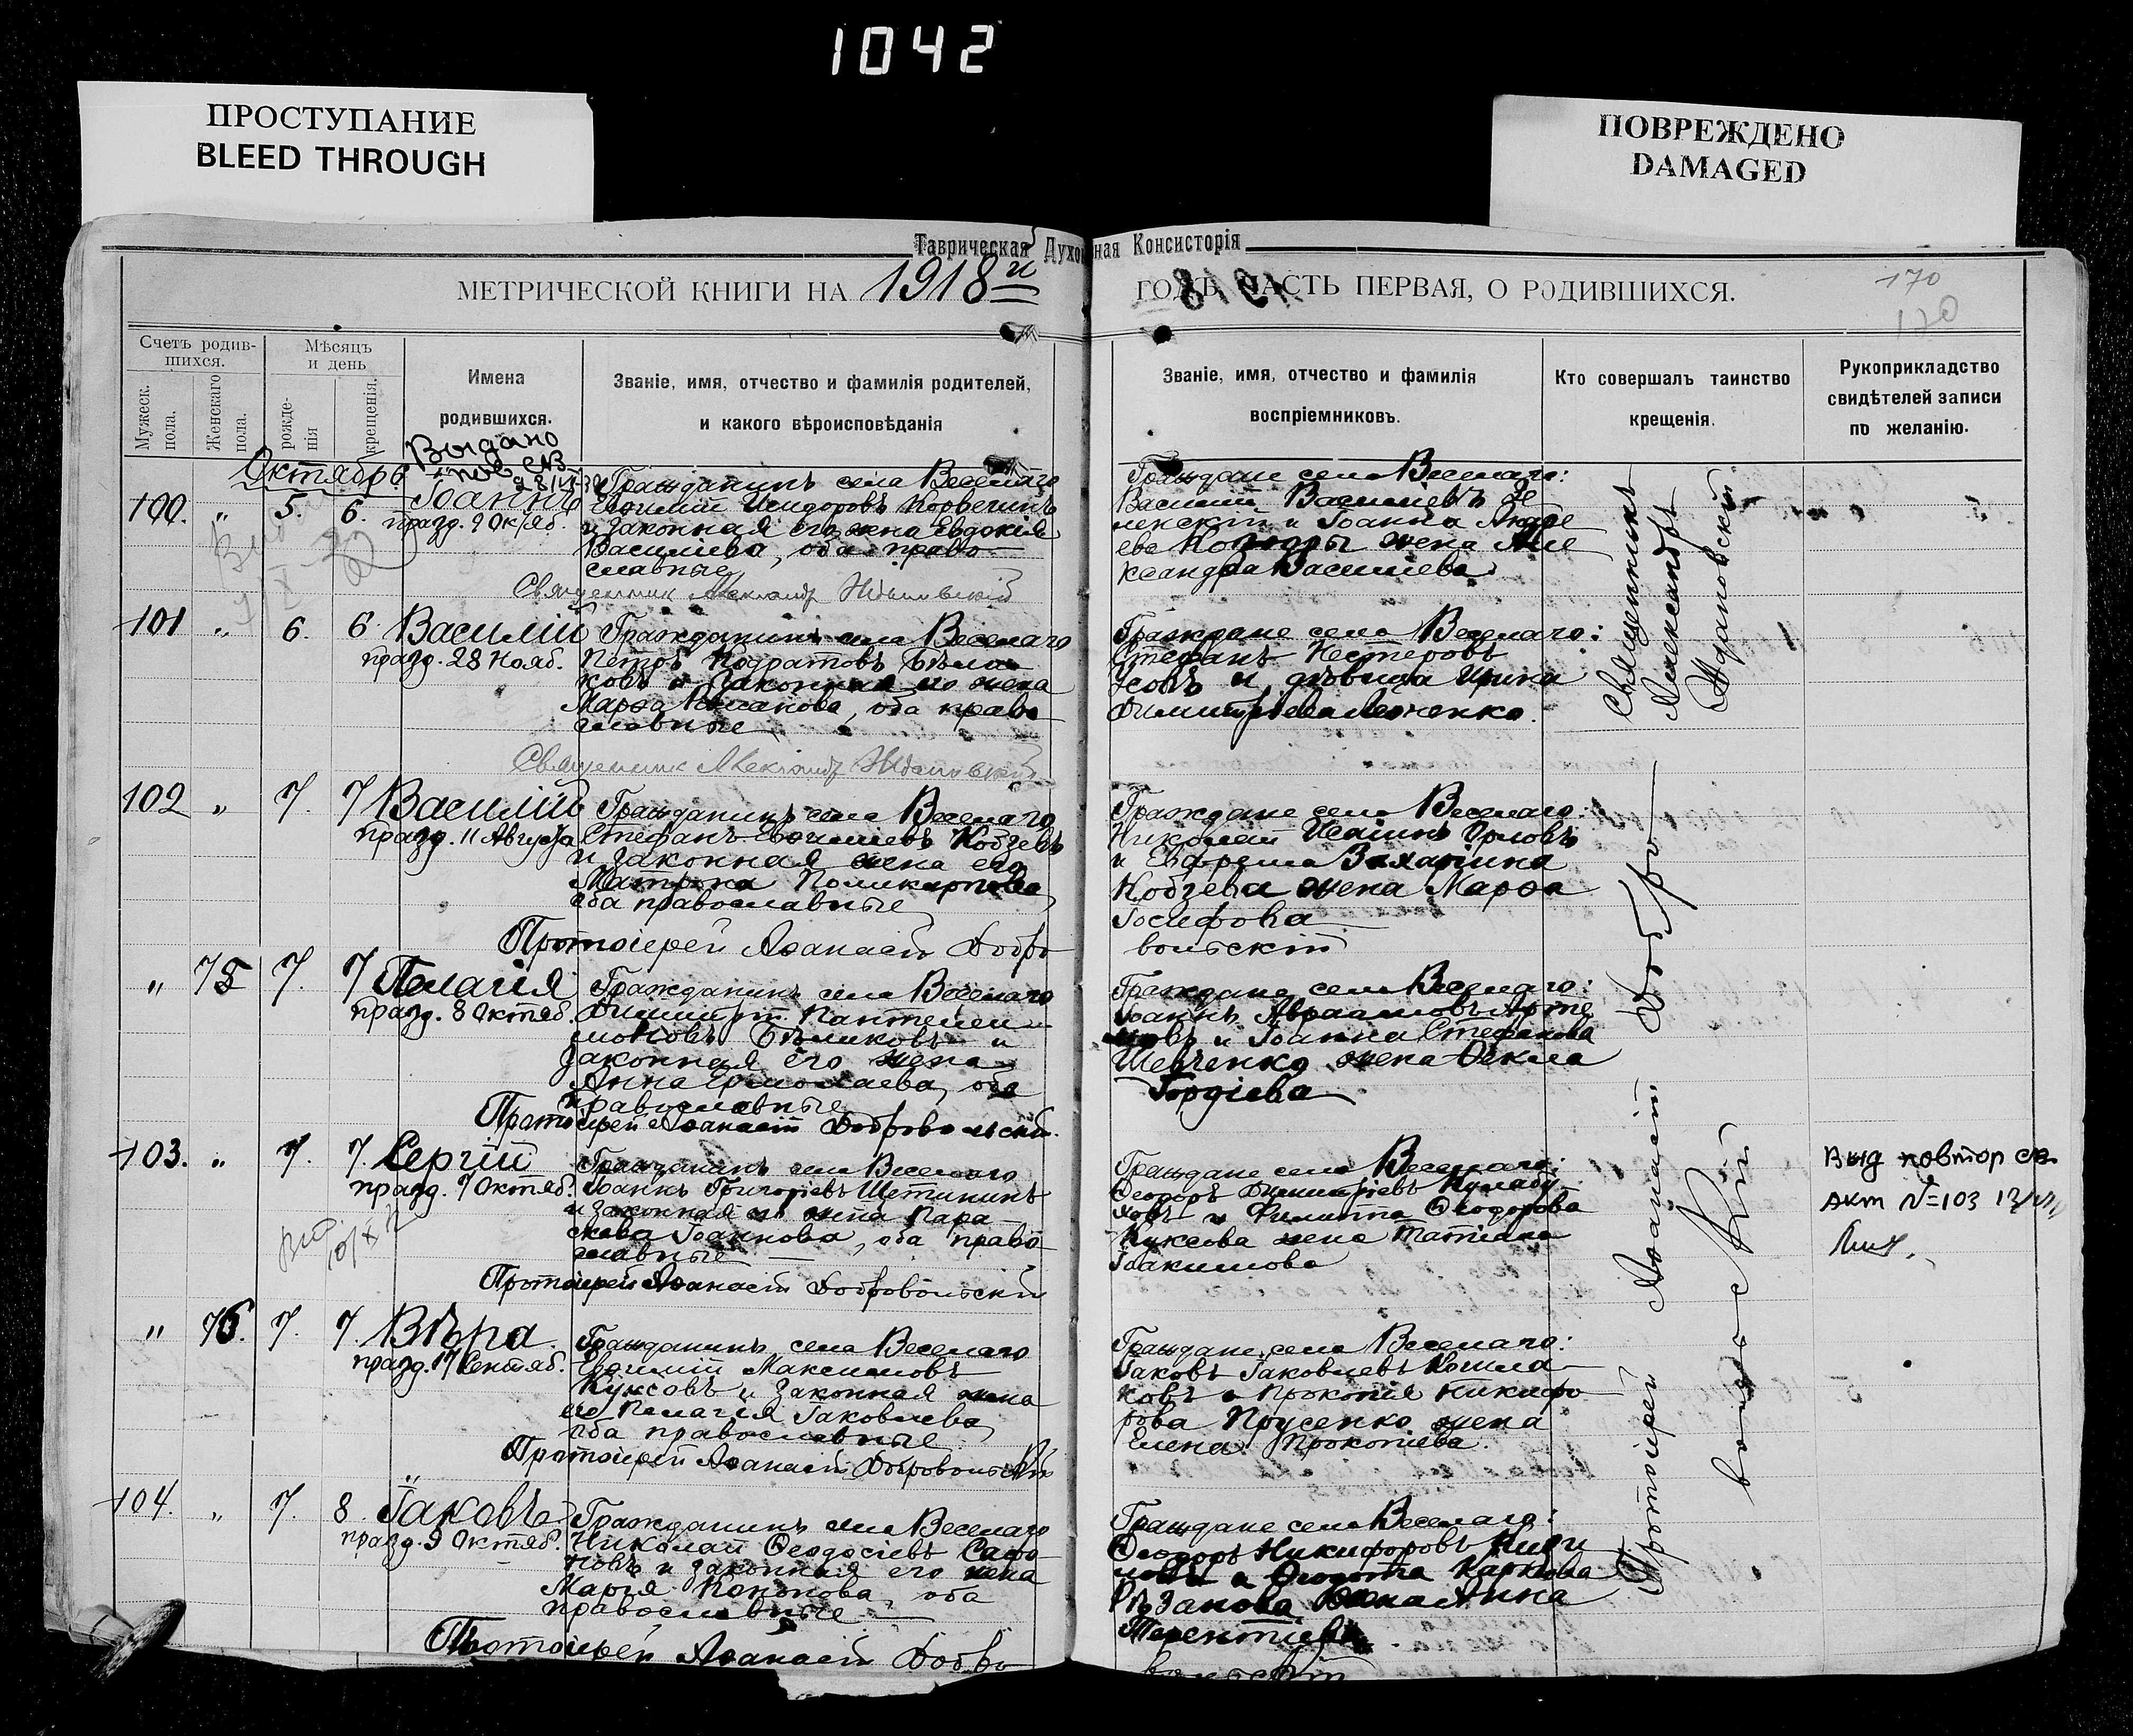 1042
ПРОСТУПАНИЕ
BLEED THROUGH
ПОВРЕЖДЕНО
DAMAGED
Таврическая Духовная Консисторія
МЕТРИЧЕСКОЙ КНИГИ НА 1918й ГОДЪ ЧАСТЬ ПЕРВАЯ, О РОДИВШИХСЯ.
170
170
Счетъ родив-
шихся.
Мужеск.
пола.
Женскаго
пола.
Мѣсяцъ
и день
рожде-
нія
крещенія.
Имена
родившихся.
Званіе, имя, отчество и фамилія родителей,
и какого вѣроисповѣданія
Званіе, имя, отчество и фамилія
воспріемниковъ.
Кто совершалъ таинство
крещенія.
Рукоприкладство
свидѣтелей записи
по желанію.
Октябрь
Выдано
пов. св.
100. " 5. 6. Іоаннъ
празд. 9 Окяб.
Гражданинъ села Веселаго
Евѳимій Исидоровъ
и законная его жена Евдокія
Василіева, оба право-
славные
Священник Александр Ждановскій
Граждане села Веселаго:
Василій Василіевъ Зе
ленскій и Іоанна Андре
ева жена Але
ксандра Василіева
Священникъ
Александръ
Ждановскій
101 " 6. 6 Василій
празд. 28 Нояб.
Гражданинъ села Веселаго
Петръ Кодратовъ Бѣли
ковъ и законная его жена
Марѳа, оба право
славные
Священник Александр Ждановскій
Граждане села Веселаго:
Стефанъ Нестеровъ
Усовъ и дѣвица Ирина
Димитріева
102 " 7. 7 Василій
празд. 11 Августа
Гражданинъ села Веселаго
Стефанъ Евѳиміевъ Кобзевъ
и законная жена его
Матрона Поликарпова
оба православные
Протоіерей Аѳанасій Добро
вольскій
Граждане села Веселаго:
Николай Исаинъ Орловъ
и Евфрема Захарина
Кобзева жена Марѳа
Іосифова
" 75 7. 7 Пелагія
празд. 8 Октяб.
Гражданинъ села Веселаго
Димитрій Пантелеи
моновъ Бѣликовъ и
законная его жена
Анна Ермолаева, оба
православные
Протоіерей Аѳанасій Добровольскій.
Граждане села Веселаго:
Іоаннъ Авраамовъ Арте
мовъ и Іоанна Стефанова
Шевченко жена Ѳекла
Гордіева
103. " 7. 7. Сергій
празд. 7 Октяб.
Гражданинъ села Веселаго
Іоаннъ Григоріевъ Щетининъ
и законная его жена Пара
скева Іоаннова, оба право
славные
Протоіерей Аѳанасій Добровольскій
Граждане села Веселаго:
Ѳеодоръ Димитріевъ
ховъ и Филиппа Ѳеодорова
Куксова жена Татіана
Іоакимова
Выд повтор св.
акт №=103
" 76. 7. 7. Вѣра
празд. 17 Сентяб.
Гражданинъ села Веселаго
Евѳимій Максимовъ
Куксовъ и законная жена
его Пелагія Іаковлева
оба православные
Протоіерей Аѳанасій Добровольскій
Граждане села Веселаго:
Іаковъ Іаковлевъ Кошла
ковъ и Прокопія Никифо
рова Прусенко жена
Елена Прокопіева.
104. " 7. 8 Іаковъ
празд. 9 Октяб.
Гражданинъ села Веселаго
Николай Ѳеодосіевъ Сафо
новъ и законная его жена
Марія Кононова, оба
православные
Протоіерей Аѳанасій Добро
вольскій
Граждане села Веселаго:
Ѳеодоръ Никифоровъ
и Ѳеодота Карпова
Рѣзанова жена Анна
Терентіева
Протоіерей Аѳанасій Добро
вольскій